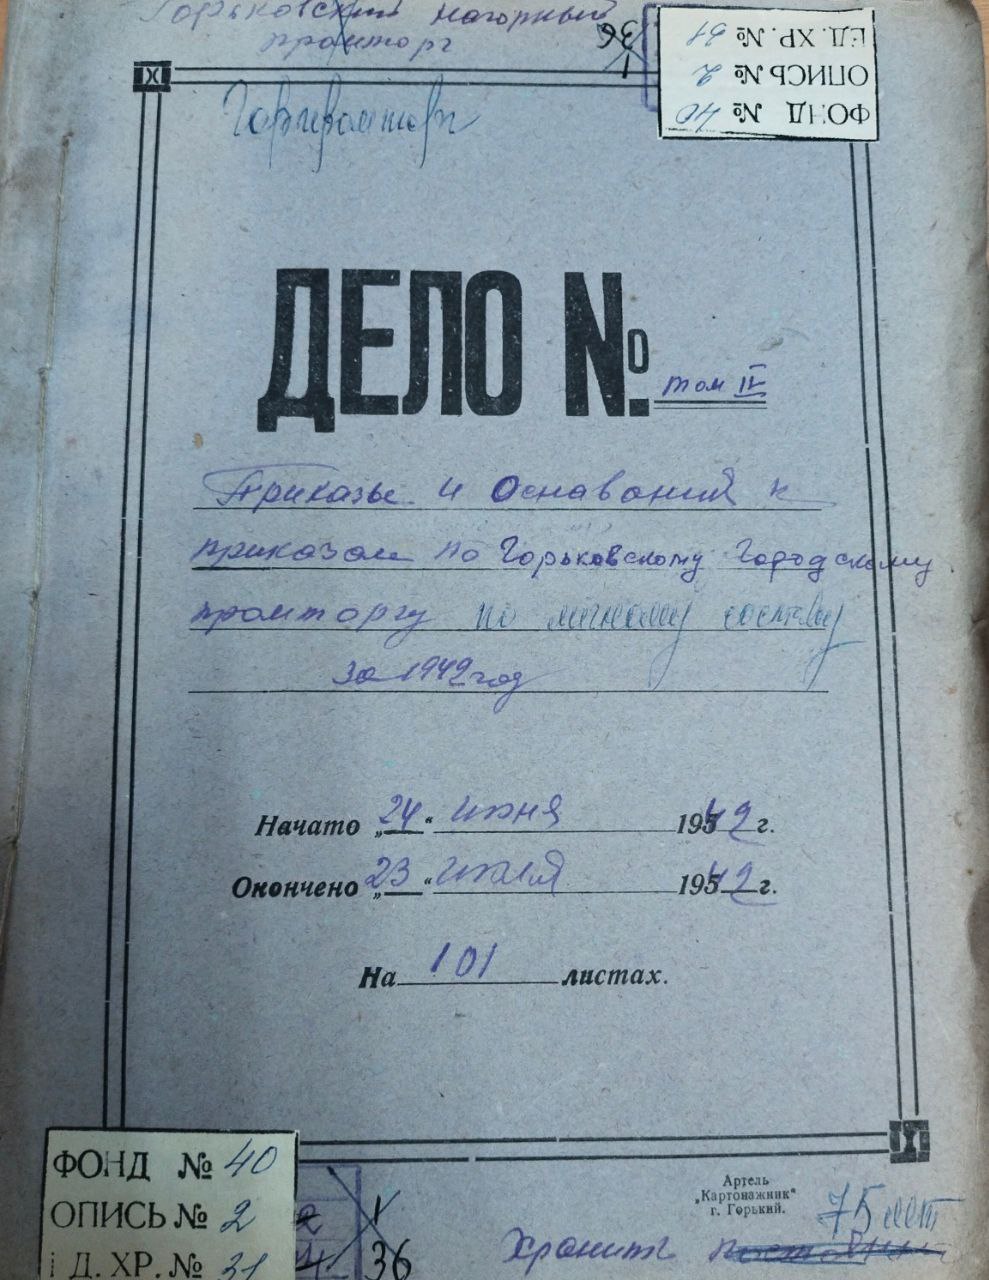 Горьковский нагорный
промторг
36
1
ЕД. ХР. № 31
ОПИСЬ № 2
ФОНД № 40
Горпромторг
ДЕЛО №. том IV
Приказы и Основания к
приказам по Горьковскому Городскому
промторгу по личному составу
за 1942 год
Начато „24“ июня 1942 г.
Окончено „23“ июля 1942 г.
На 101 листах.
ФОНД № 40
ОПИСЬ № 2
Д. ХР. № 31
1
36
Артель
„Картонажник“
г. Горький.
75 лет
Хранить